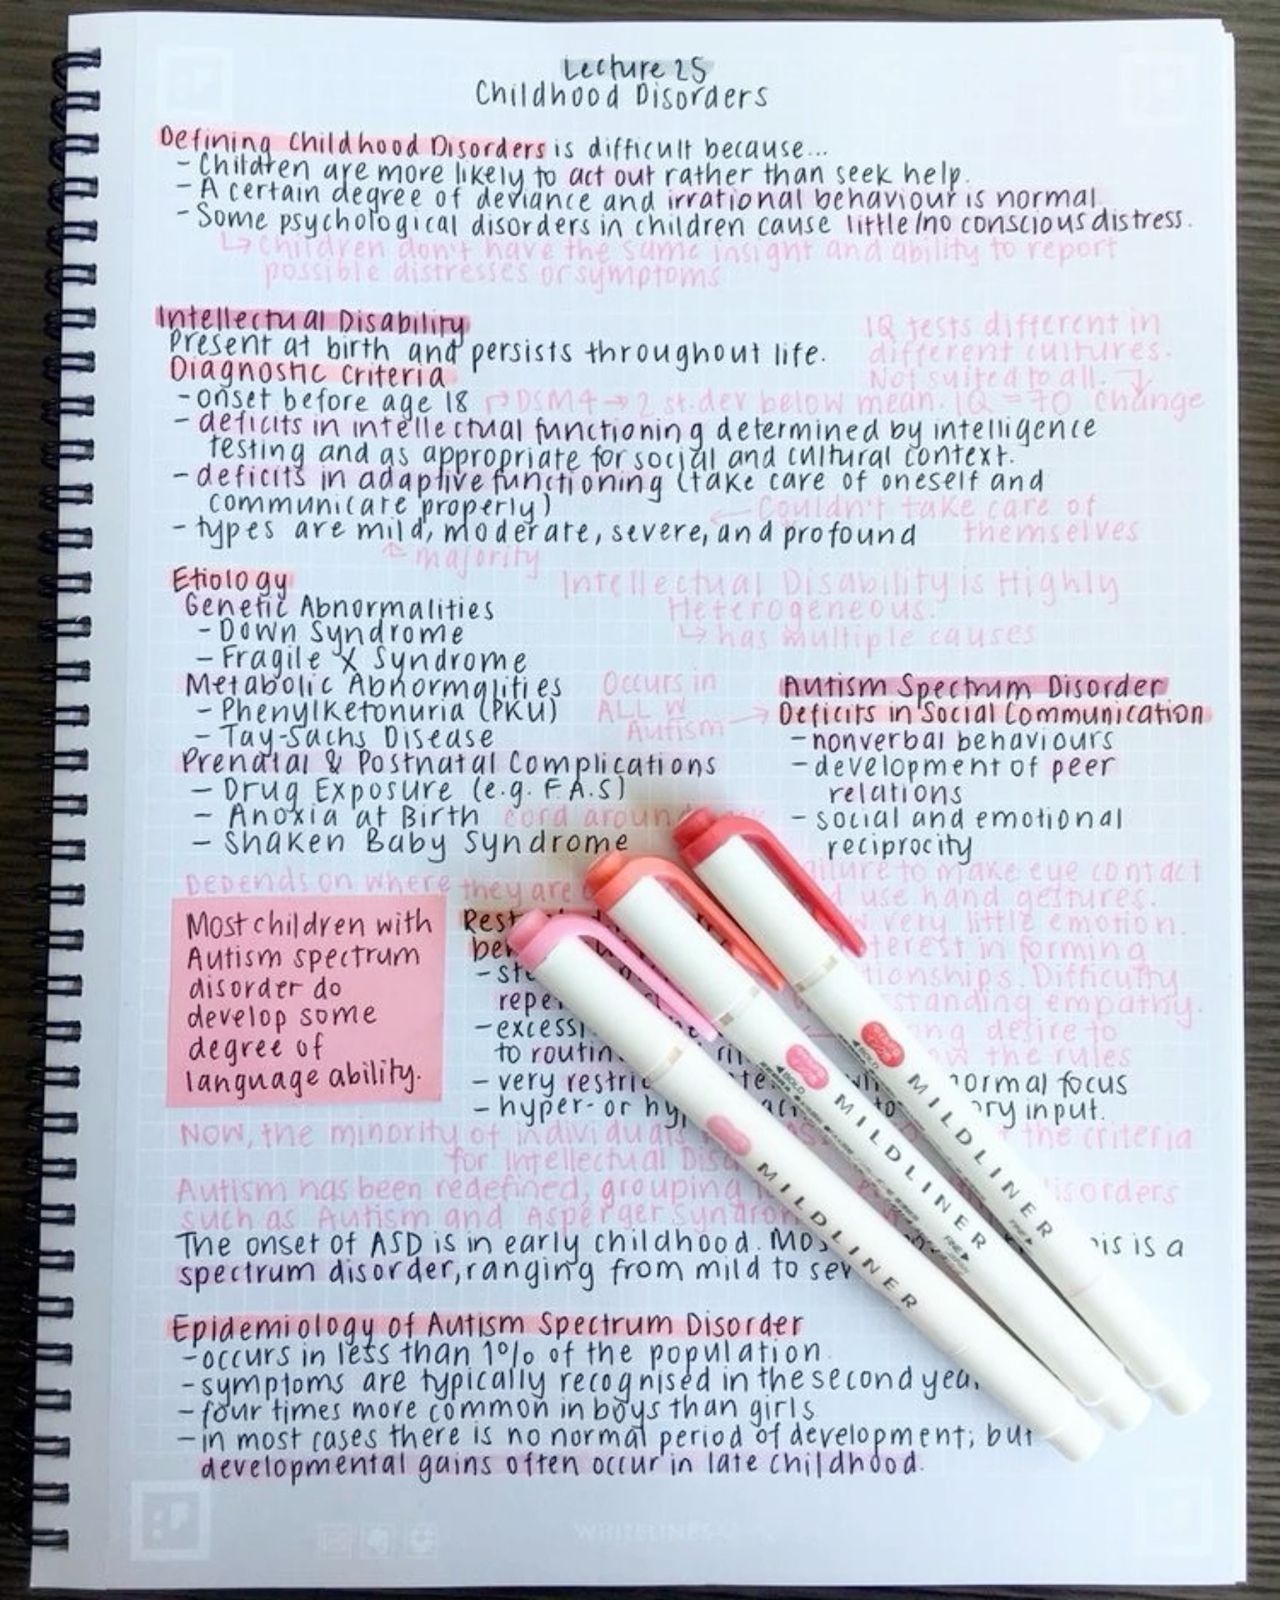 Lecture 25
Childhood Disorders
Defining Childhood Disorders is difficult because...
- Children are more likely to act out rather than seek help.
- A certain degree of deviance and irrational behaviour is normal
- Some psychological disorders in children cause little/no conscious distress.
↳ Children don't have the same insight and ability to report
possible distresses or symptoms
Intellectual Disability
Present at birth and persists throughout life.
IQ tests different in
different cultures.
Not suited to all.
Diagnostic Criteria
- onset before age 18 → DSM4 → 2 st.dev below mean. IQ = 70 change
- deficits in intellectual functioning determined by intelligence
testing and as appropriate for social and cultural context.
- deficits in adaptive functioning (take care of oneself and
communicate properly)
← Couldn't take care of
themselves
- types are mild, moderate, severe, and profound
majority
Etiology
Intellectual Disability is Highly
Heterogeneous.
↳ has multiple causes
Genetic Abnormalities
- Down Syndrome
- Fragile X Syndrome
Metabolic Abnormalities
- Phenylketonuria (PKU)
- Tay-Sachs Disease
Prenatal & Postnatal Complications
- Drug Exposure (e.g. F.A.S)
- Anoxia at Birth cord around
- Shaken Baby Syndrome
Occurs in
ALL w
Autism →
Autism Spectrum Disorder
Deficits in Social Communication
- nonverbal behaviours
- development of peer
relations
- social and emotional
reciprocity
to make eye contact
use hand gestures.
very little emotion.
in forming
Difficulty
empathy.
desire to
the rules
Depends on where they are
Most children with
Autism spectrum
disorder do
develop some
degree of
language ability.
to
- very focus
- hyper- or input.
Now, the minority of individuals the criteria
for Intellectual
Autism has been redefined, grouping disorders
such as Autism and Asperger
The onset of ASD is in early childhood. is a
spectrum disorder, ranging from mild to
Epidemiology of Autism Spectrum Disorder
- occurs in less than 1% of the population.
- symptoms are typically recognised in the second
- four times more common in boys than girls
- in most cases there is no normal period of development; but
developmental gains often occur in late childhood.
MILDLINER
MILDLINER
MILDLINER
WHITELINES